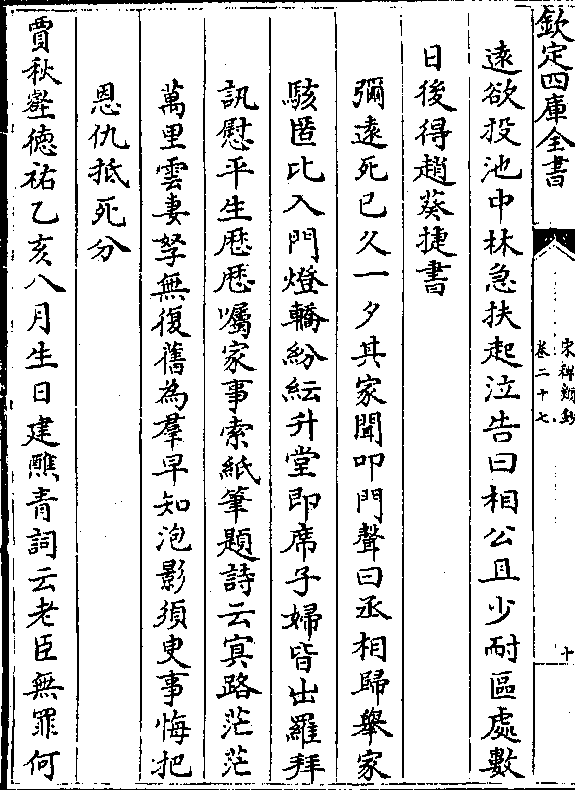 欽定四庫全書
宋稗類鈔
卷二十七
十
遠欲投池中林急扶起泣告曰相公且少耐區處數
日後得趙葵捷書
彌遠死已久一夕其家聞叩門聲曰丞相歸舉家
駭匿比入門燈轎紛紜升堂即席子婦皆出羅拜
訊慰平生歴歴囑家事索紙筆題詩云冥路茫茫
萬里雲妻孥無復舊為羣早知泡影須臾事悔把
恩仇抵死分
賈秋壑德祐乙亥八月生日建醮青詞云老臣無罪何